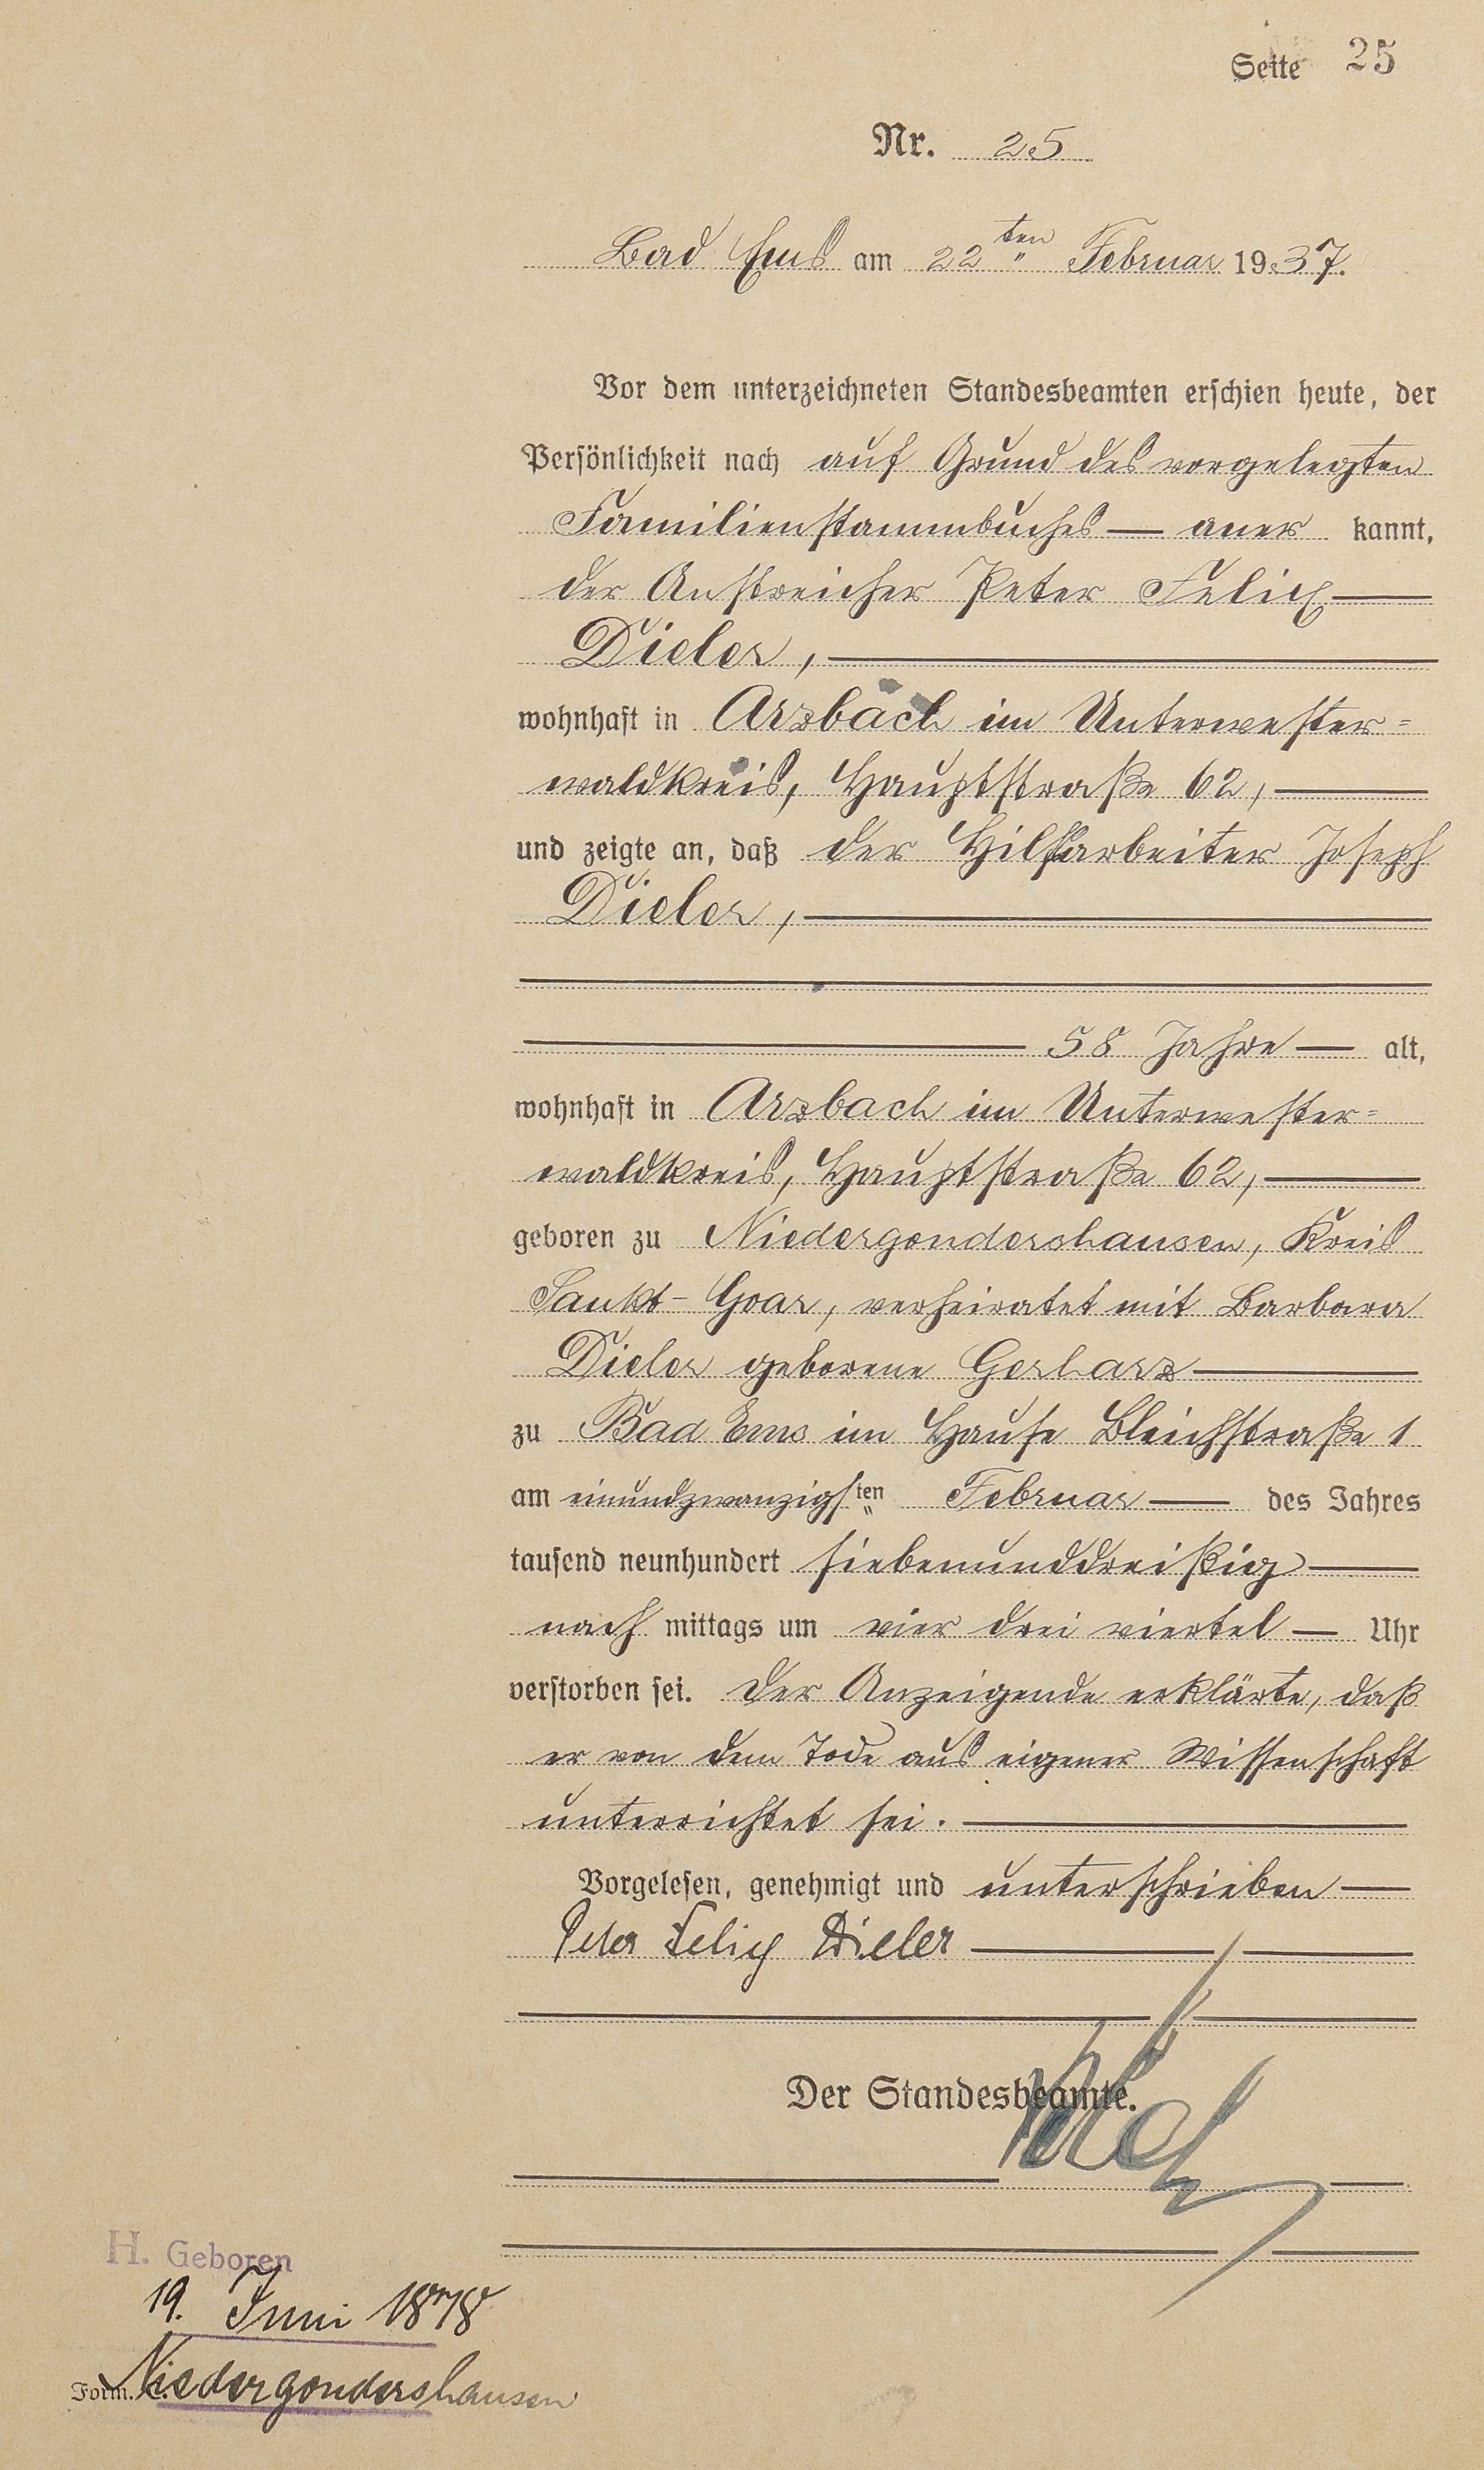 Seite 25
Nr. 25
Bad Ems am 22ten Februar 1937.
Vor dem unterzeichneten Standesbeamten erschien heute, der
Persönlichkeit nach auf Grund des vorgelegten
Familienstammbuches — aner kannt,
der Anstreicher Peter Felix —
Dieler, —
wohnhaft in Arzbach im Unterwester=
waldkreis, Hauptstraße 62, —
und zeigte an, daß der Hilfsarbeiter Joseph
Dieler, —
— 58 Jahre — alt,
wohnhaft in Arzbach im Unterwester=
waldkreis, Hauptstraße 62, —
geboren zu Niedergondershausen, Kreis
Sankt-Goar, verheiratet mit Barbara
Dieler geborene Gerharz —
zu Bad Ems im Hause Bleichstraße 1
am einundzwanzigsten Februar — des Jahres
tausend neunhundert siebenunddreißig —
nach mittags um vier drei viertel — Uhr
verstorben sei. Der Anzeigende erklärte, daß
er von dem Tode aus eigener Wissenschaft
unterrichtet sei. —
Vorgelesen, genehmigt und unterschrieben —
Peter Felix Dieler —
Der Standesbeamte.
H. Geboren
19. Juni 1878
Niedergondershausen
Form.